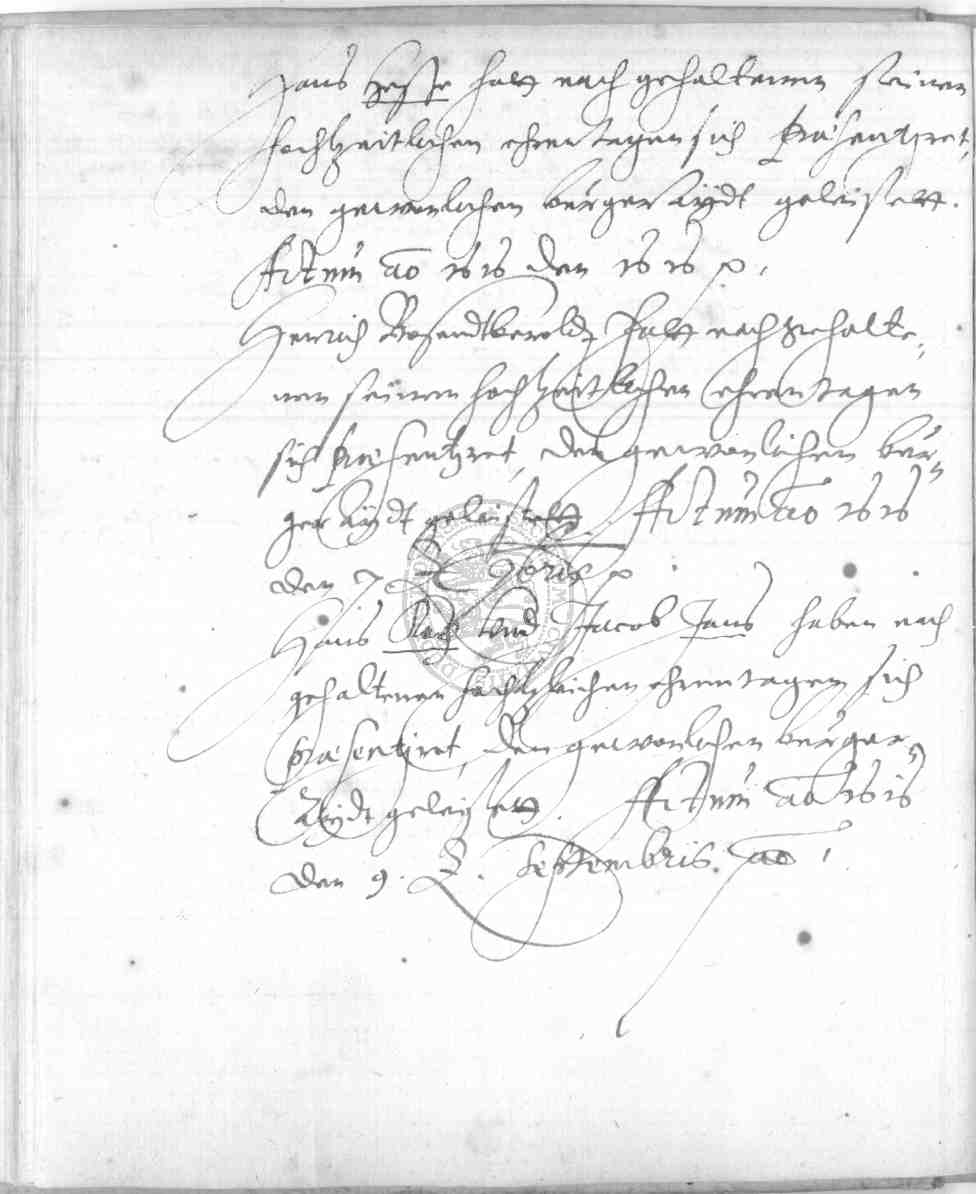 Hans Hesse hatt nach gehaltenen seinen
hochzeitlichen ehren tagen sich præsentiret,
den gewonlichen burger aÿdt geleistett.
Actum ao 1616 den
Henrich hatt nach gehalte-
nen seinen hochzeitlichen ehren tagen
sich præsentiret, den gewonlichen bur-
ger aÿdt geleistett. Actum ao 1616
den 7 7bris
Hans Koch und Jacob Jans haben nach
gehaltenen hochtzleichen ehren tagen sich
præsentiret, den gewonlichen burger-
aÿdt geleistett. Actum ao 1616
den 9. Septembris.